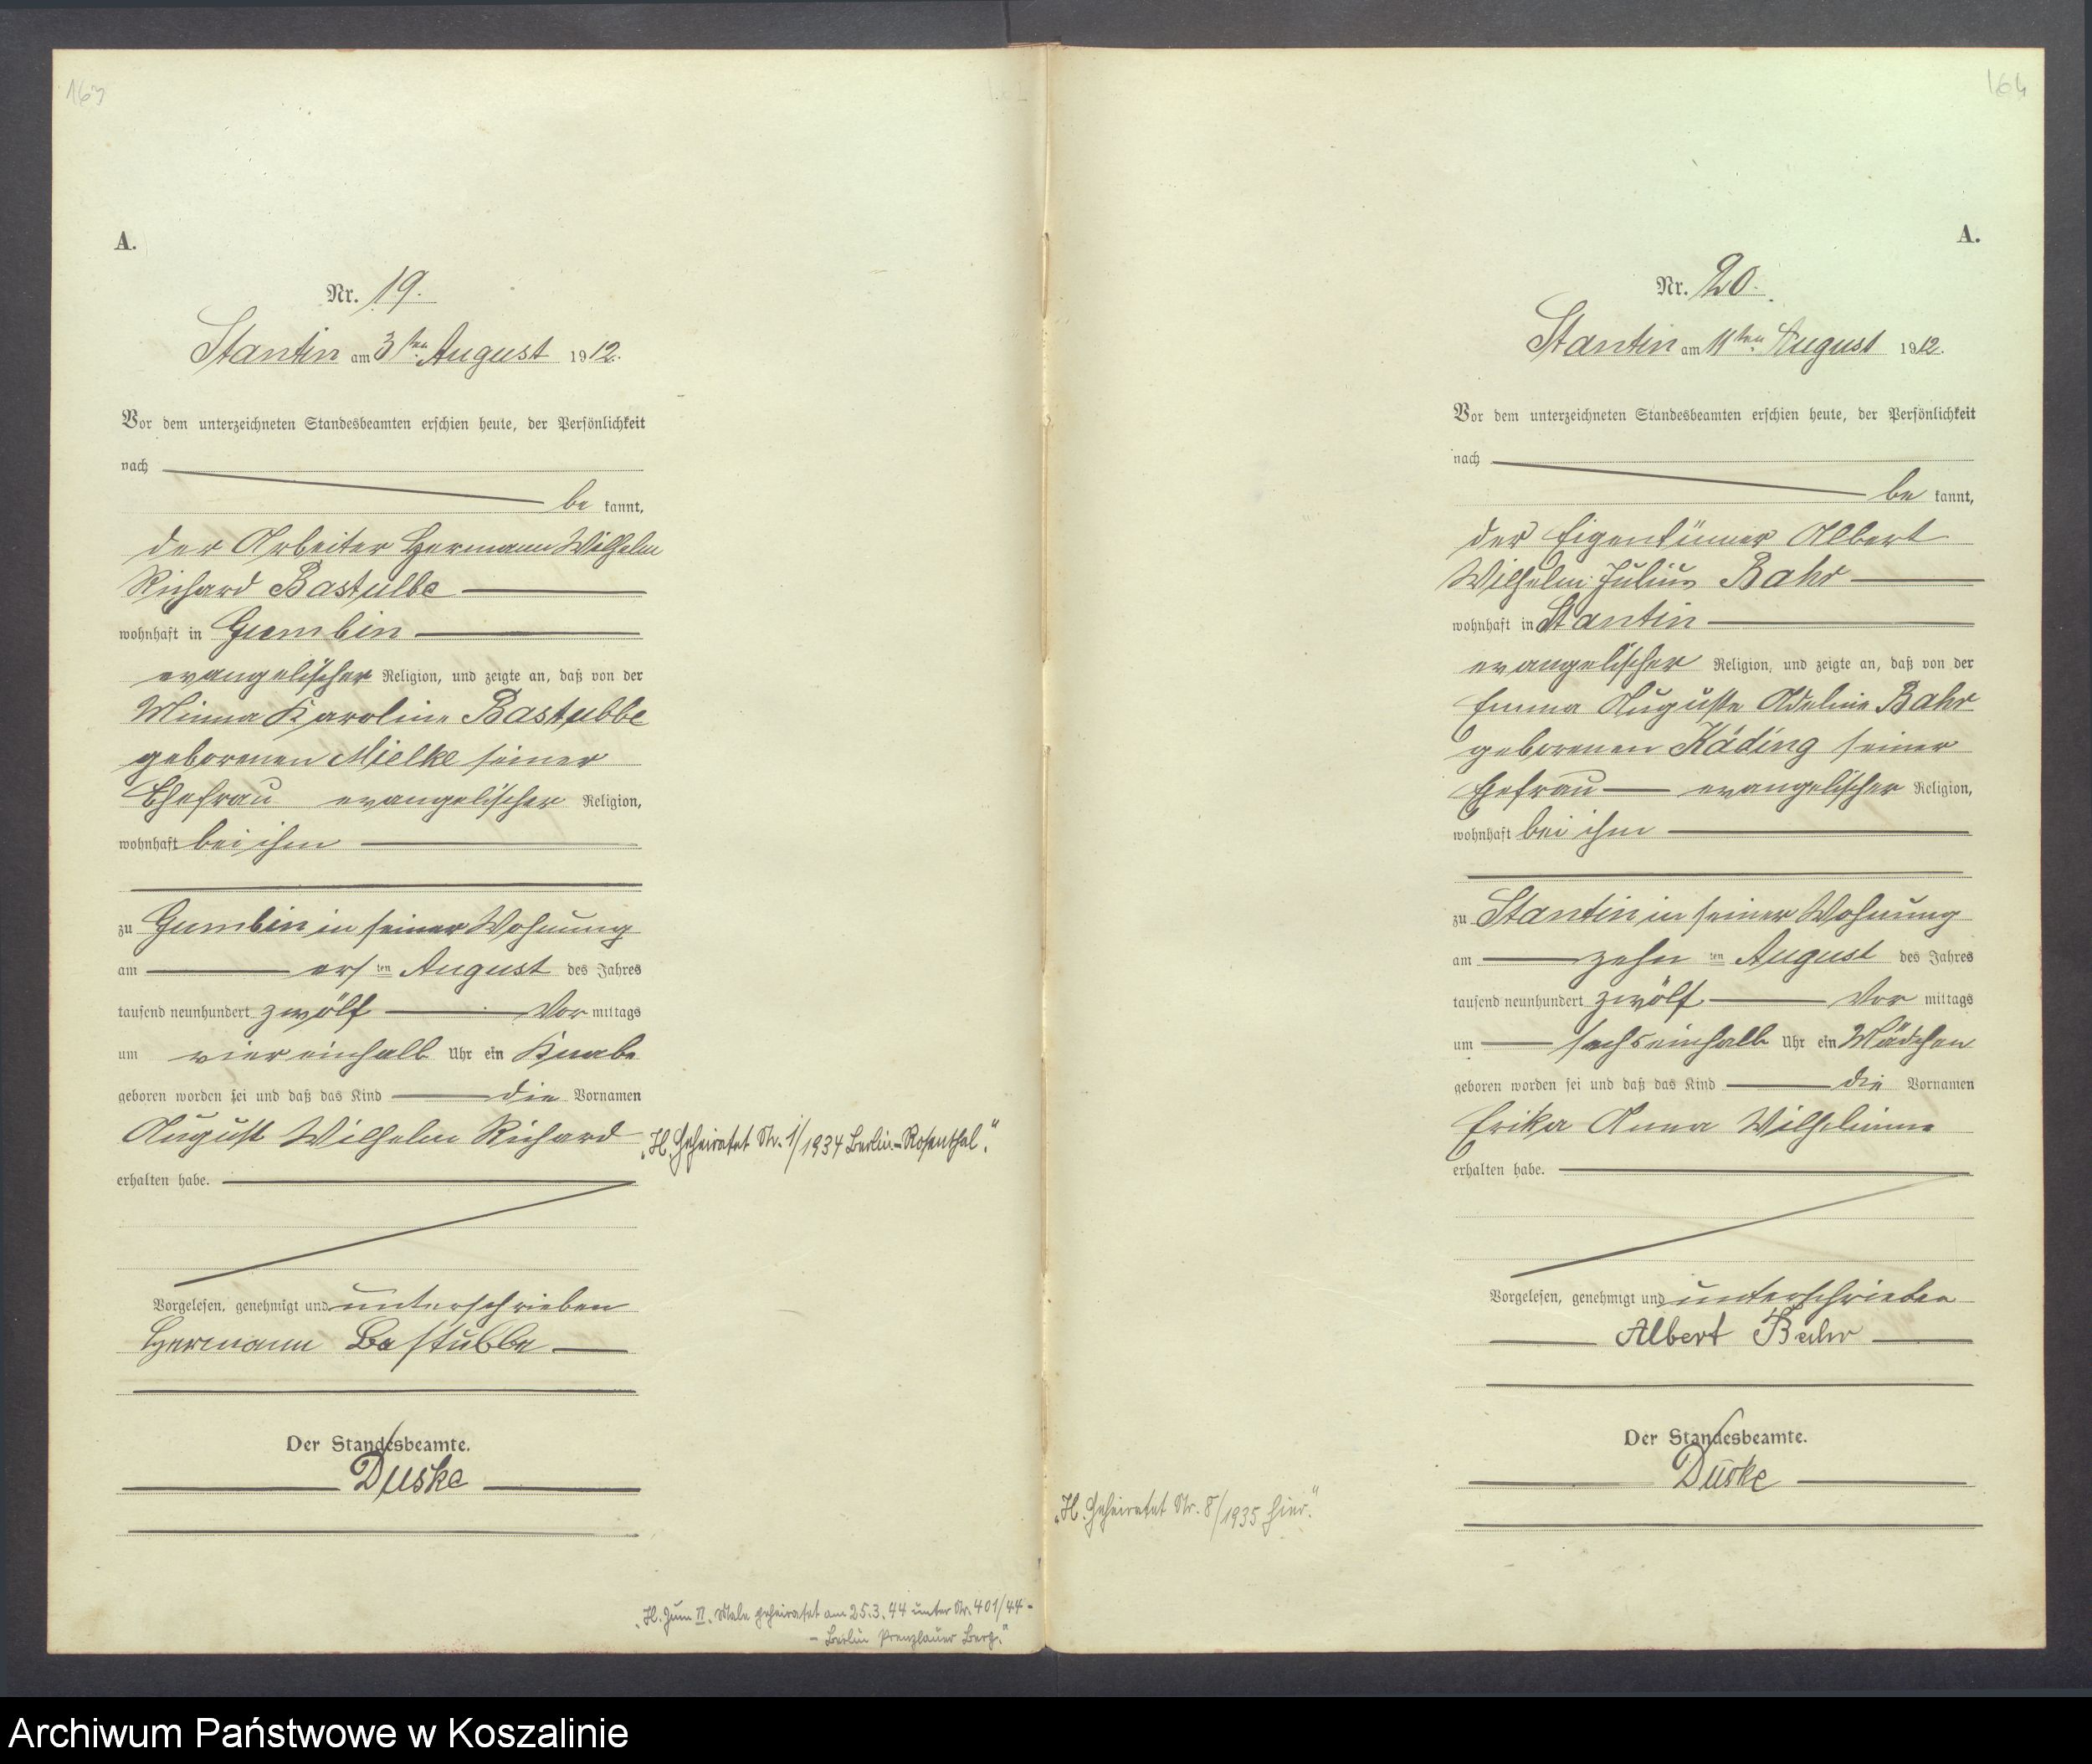 163
A.
Nr. 19.
Stantin am 3ten August 1912.
Vor dem unterzeichneten Standesbeamten erschien heute, der Persönlichkeit
nach
be kannt,
der Arbeiter Hermann Wilhelm
Richard Bastubbe
wohnhaft in Gumbin
evangelischer Religion, und zeigte an, daß von der
Minna Karoline Bastubbe
geborenen Mielke seiner
Ehefrau evangelischer Religion,
wohnhaft bei ihm
zu Gumbin in seiner Wohnung
am ersten August des Jahres
tausend neunhundert zwölf Vor mittags
um viereinhalb Uhr ein Knabe
geboren worden sei und daß das Kind die Vornamen
August Wilhelm Richard
erhalten habe.
Vorgelesen, genehmigt und unterschrieben
Hermann Bastubbe
Der Standesbeamte.
Duske
„H. Geheiratet Nr. 1/1934 Berlin-Rosenthal."
„H. Zum II. Male geheiratet am 25.3.44 unter Nr. 401/44 -
- Berlin Prenzlauer Berg."
164
A.
Nr. 20.
Stantin am 11ten August 1912.
Vor dem unterzeichneten Standesbeamten erschien heute, der Persönlichkeit
nach
be kannt,
der Eigentümer Albert
Wilhelm Julius Bahr
wohnhaft in Stantin
evangelischer Religion, und zeigte an, daß von der
Emma Auguste Adeline Bahr
geborenen Käding seiner
Ehefrau evangelischer Religion,
wohnhaft bei ihm
zu Stantin in seiner Wohnung
am zehnten August des Jahres
tausend neunhundert zwölf Vor mittags
um sechseinhalb Uhr ein Mädchen
geboren worden sei und daß das Kind die Vornamen
Erika Anna Wilhelmine
erhalten habe.
Vorgelesen, genehmigt und unterschrieben
Albert Bahr
Der Standesbeamte.
Duske
„H. Geheiratet Nr. 8/1935 hier."
Archiwum Państwowe w Koszalinie